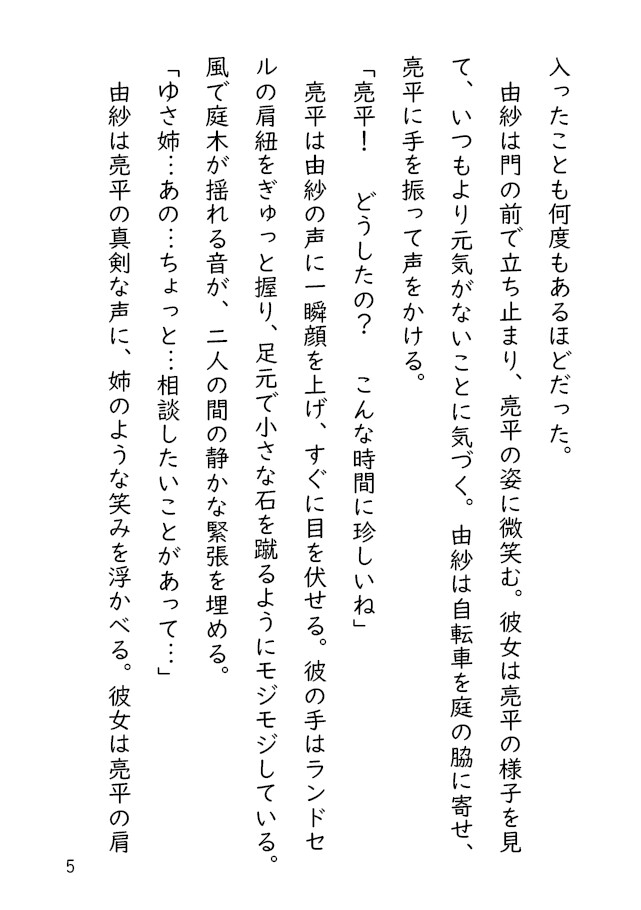 入ったことも何度もあるほどだった。
　由紗は門の前で立ち止まり、亮平の姿に微笑む。彼女は亮平の様子を見
て、いつもより元気がないことに気づく。由紗は自転車を庭の脇に寄せ、
亮平に手を振って声をかける。
「亮平！　どうしたの？　こんな時間に珍しいね」
　亮平は由紗の声に一瞬顔を上げ、すぐに目を伏せる。彼の手はランドセ
ルの肩紐をぎゅっと握り、足元で小さな石を蹴るようにモジモジしている。
風で庭木が揺れる音が、二人の間の静かな緊張を埋める。
「ゆさ姉…あの…ちょっと…相談したいことがあって…」
　由紗は亮平の真剣な声に、姉のような笑みを浮かべる。彼女は亮平の肩
5